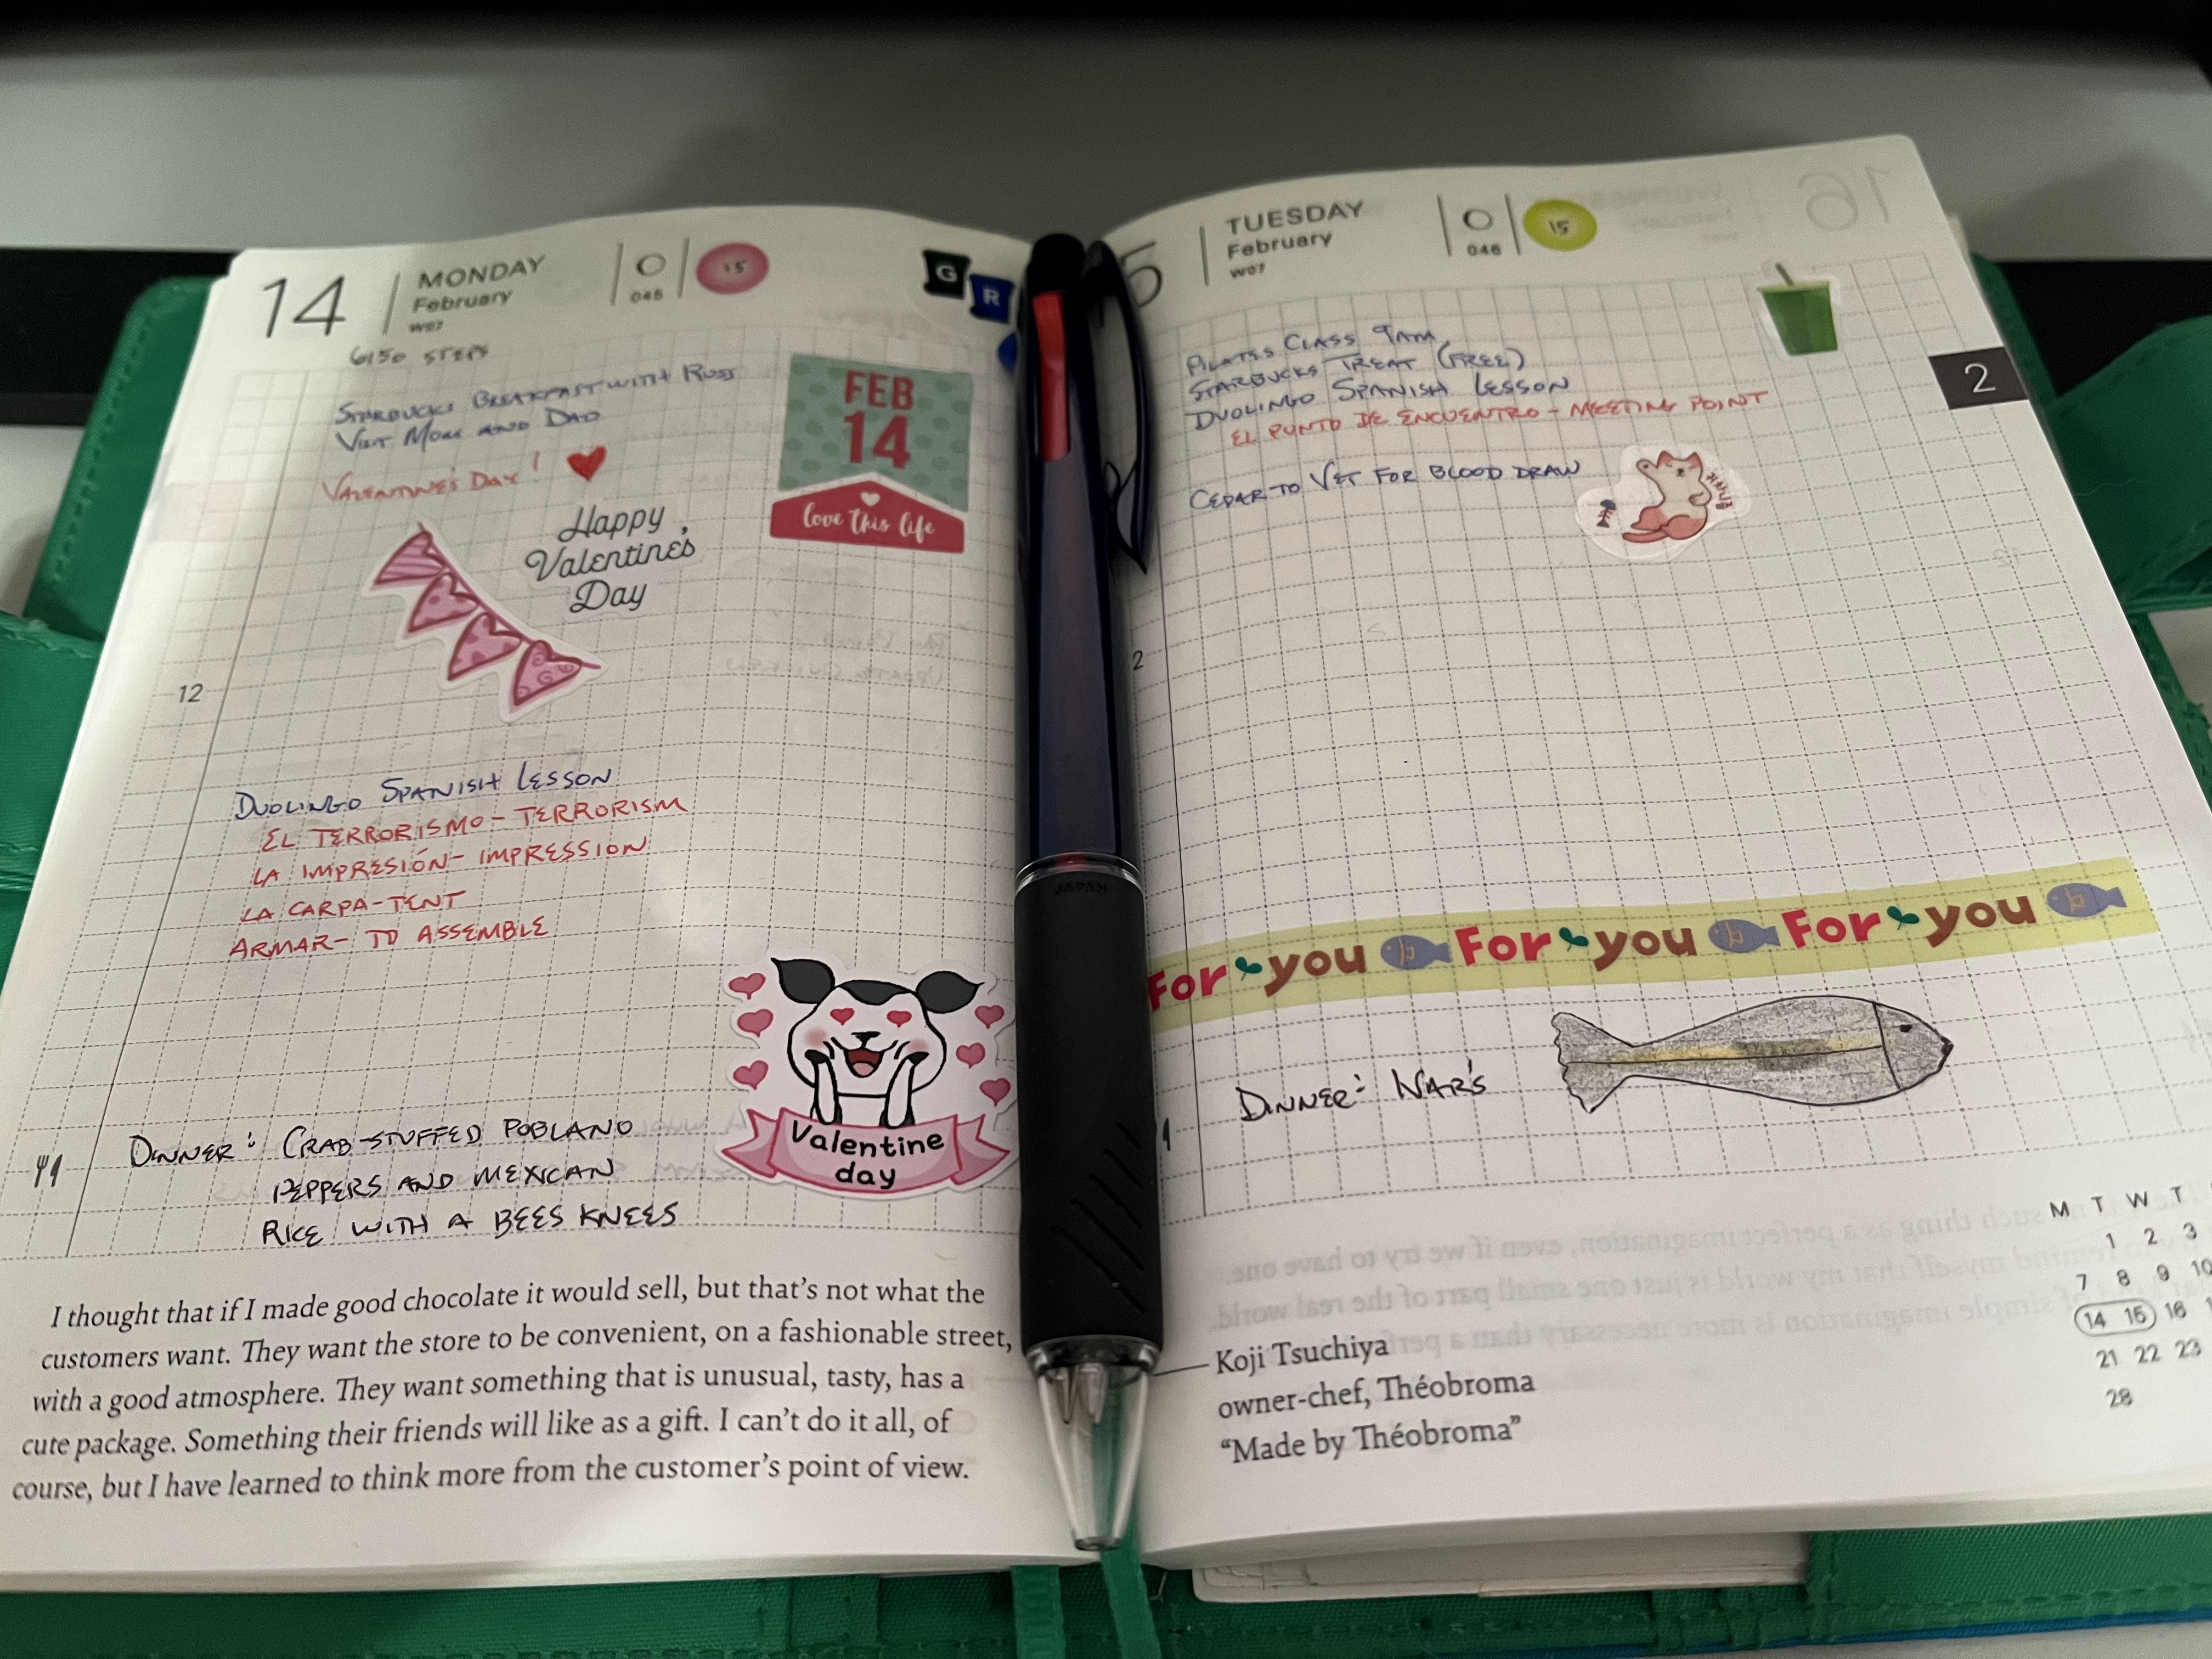 14
MONDAY
February
W07
045
15
G
R
6150 STEPS
STARBUCKS BREAKFAST WITH RUSS
VISIT MOM AND DAD
VALENTINE'S DAY!
FEB
14
love this life
Happy
Valentine's
Day
12
DUOLINGO SPANISH LESSON
EL TERRORISMO - TERRORISM
LA IMPRESIÓN - IMPRESSION
LA CARPA - TENT
ARMAR - TO ASSEMBLE
Valentine
day
DINNER: CRAB-STUFFED POBLANO
PEPPERS AND MEXICAN
RICE WITH A BEES KNEES
I thought that if I made good chocolate it would sell, but that's not what the
customers want. They want the store to be convenient, on a fashionable street,
with a good atmosphere. They want something that is unusual, tasty, has a
cute package. Something their friends will like as a gift. I can't do it all, of
course, but I have learned to think more from the customer's point of view.
JAPAN
5
TUESDAY
February
W07
046
15
2
PILATES CLASS 9AM
STARBUCKS TREAT (FREE)
DUOLINGO SPANISH LESSON
EL PUNTO DE ENCUENTRO - MEETING POINT
CEDAR TO VET FOR BLOOD DRAW
2
For you For you For you
DINNER: NAR'S
Koji Tsuchiya
owner-chef, Théobroma
"Made by Théobroma"
M T W T
1 2 3
7 8 9 10
14 15 16
21 22 23
28